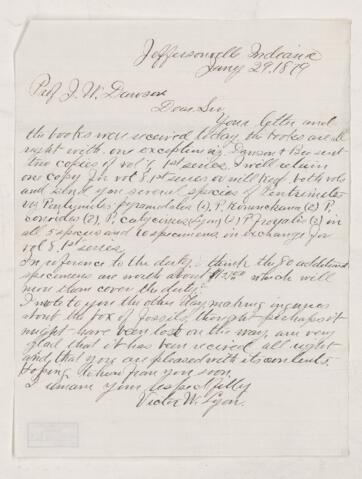 Jeffersonville Indiana
Jany 29. 1879
Prof J. W. Dawson
Dear Sir
Your letter and
the books were received today, the books are all
right with one exception viz. Dawson & Bro sent
two copies of vol 1st series. I will retain
one copy for vol 8 1st series or will keep both vols
and send you several species of Pentremites
viz Pentremites pyramidatus (2), P. Koninckana (2) P.
conoideus (2), P. calycinus (Lyon) (2) P. royalis (2) in
all 5 species and 10 specimens in exchange for
vol 8. 1st series.
In reference to the duty, I think the 80 additional
specimens are worth about which will
more than cover the duty.
I wrote to you the other day making inquiries
about the box of fossils, thought perhaps it
might have been lost on the way, am very
glad that it has been received all right
and that you are pleased with its contents.
Hoping to hear from you soon
I remain yours respectfully
Victor W. Lyon.